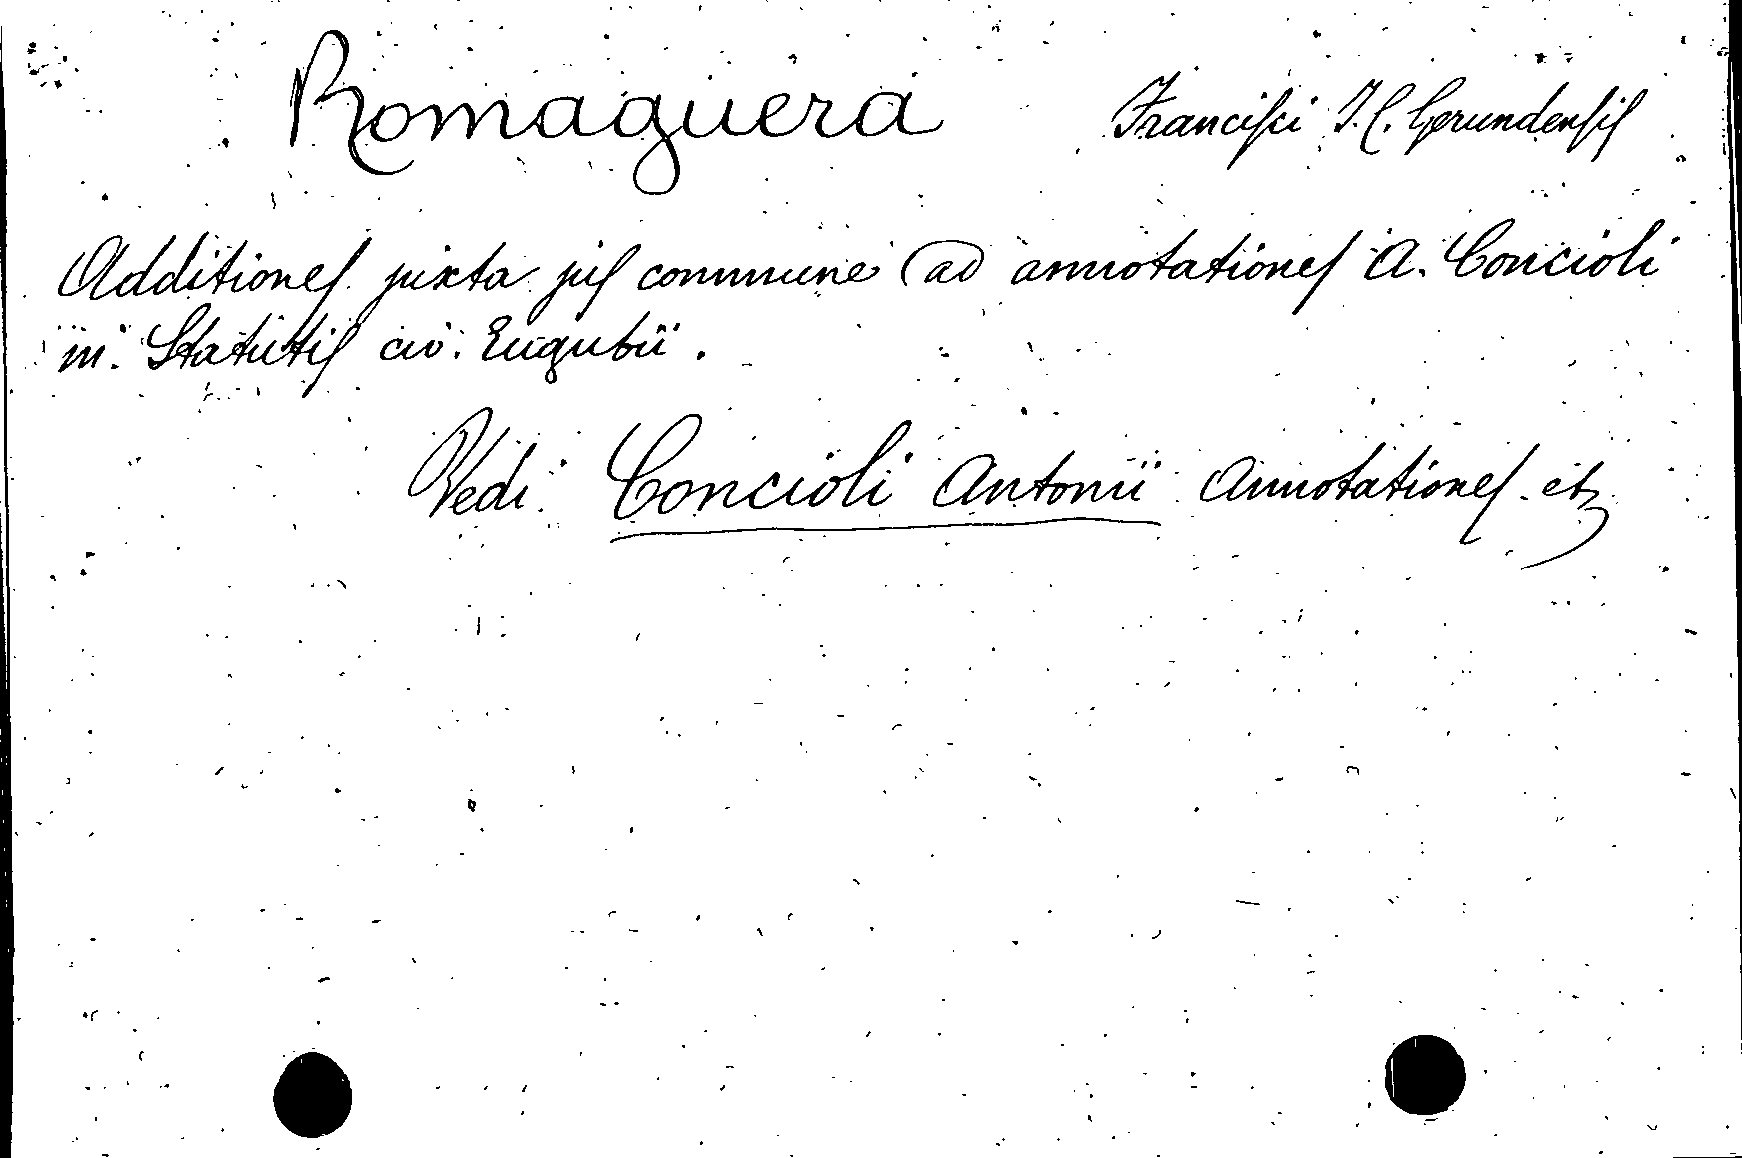 Romaguera Francisci J. C. Gerundensis
Additiones juxta jus commune ad annotationes A. Concioli
in Statutis civ. Eugubii.
Vedi Concioli Antonii Annotationes etc